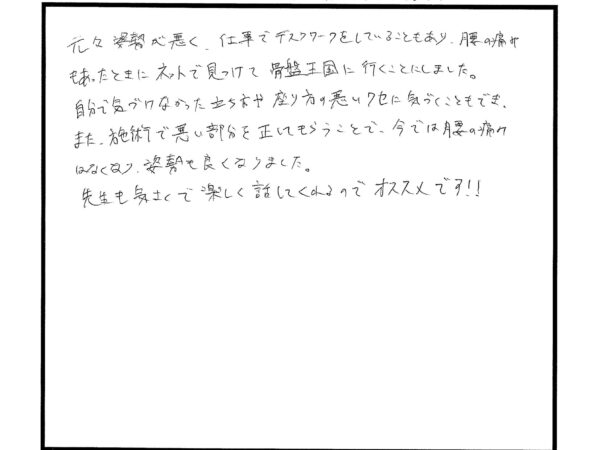 元々姿勢が悪く、仕事でデスクワークをしていることもあり、腰の痛み
もあったときにネットで見つけて骨盤王国に行くことにしました。
自分で気づけなかった立ち方や座り方の悪いクセに気づくこともでき、
また、施術で悪い部分を正してもらうことで、今では腰の痛み
はなくなり、姿勢も良くなりました。
先生も気さくで楽しく話してくれるのでオススメです!!